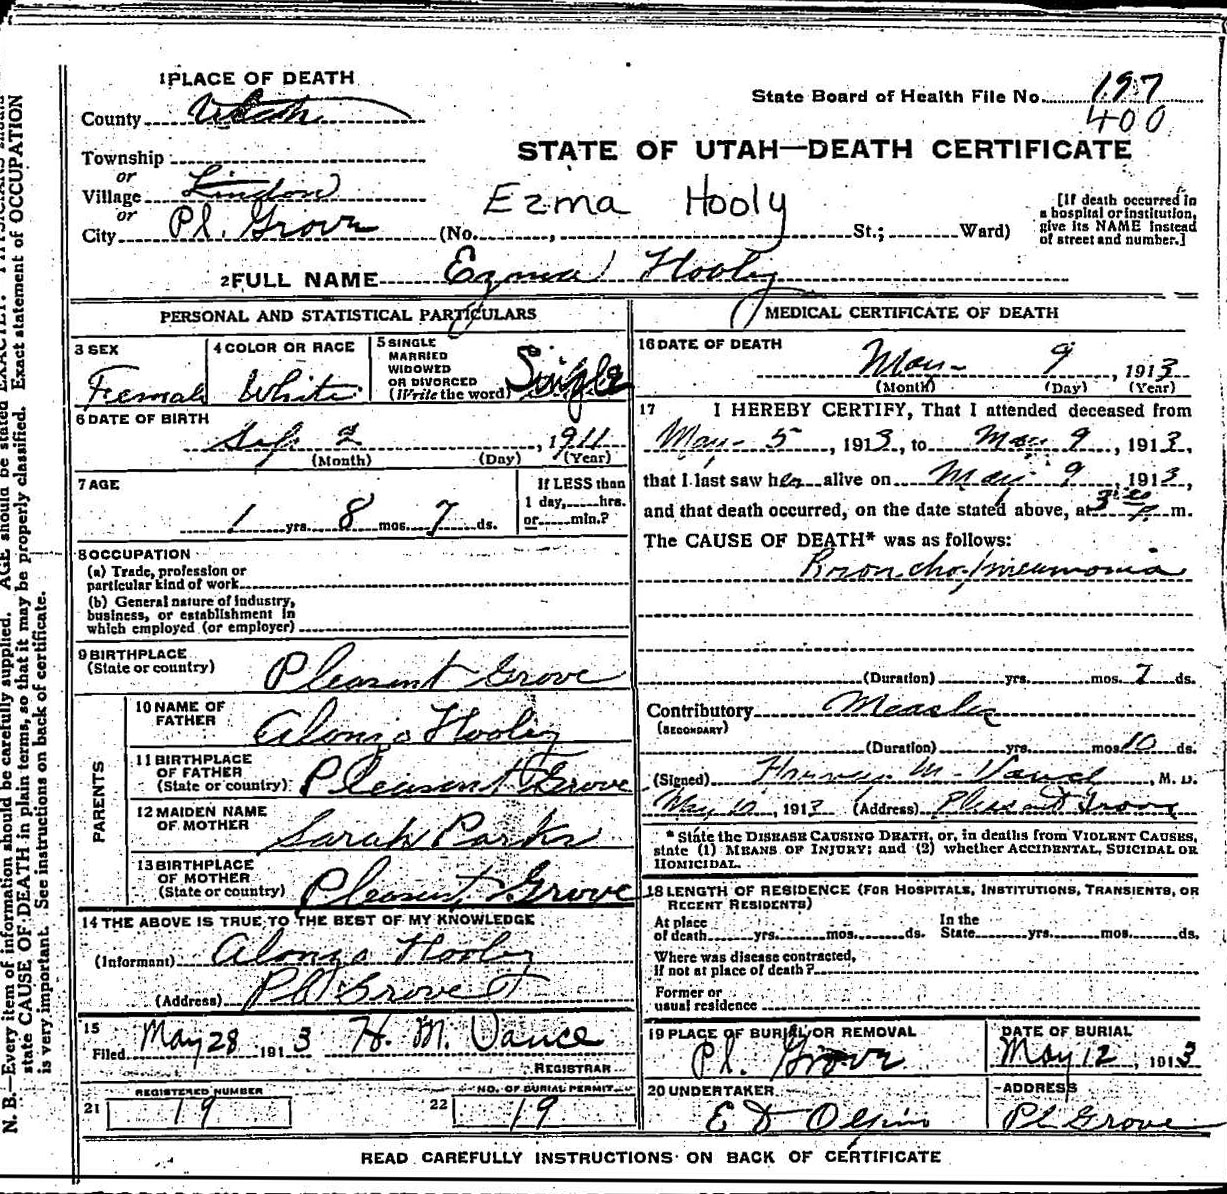 1 PLACE OF DEATH
State Board of Health File No. 197
400
County Utah
STATE OF UTAH—DEATH CERTIFICATE
Township
or
Village Lindon
or
City Pl. Grove (No. , St.; Ward)
Ezma Hooly
[If death occurred in
a hospital or institution,
give its NAME instead
of street and number.]
2 FULL NAME Ezma Hooly
PERSONAL AND STATISTICAL PARTICULARS
3 SEX
Female
4 COLOR OR RACE
White
5 SINGLE
MARRIED
WIDOWED
OR DIVORCED
(Write the word) Single
6 DATE OF BIRTH
Sep. 2, 1911
(Month) (Day) (Year)
7 AGE
1 yrs. 8 mos. 7 ds.
If LESS than
1 day, hrs.
or min.?
8 OCCUPATION
(a) Trade, profession or
particular kind of work
(b) General nature of industry,
business, or establishment in
which employed (or employer)
9 BIRTHPLACE
(State or country) Pleasant Grove
PARENTS
10 NAME OF
FATHER Alonzo Hooley
11 BIRTHPLACE
OF FATHER
(State or country) Pleasant Grove
12 MAIDEN NAME
OF MOTHER Sarah Parks
13 BIRTHPLACE
OF MOTHER
(State or country) Pleasant Grove
14 THE ABOVE IS TRUE TO THE BEST OF MY KNOWLEDGE
(Informant) Alonzo Hooley
(Address) Pl Grove
15
Filed May 28 1913 H. M. Vance
REGISTRAR
REGISTERED NUMBER
21 19
NO. OF BURIAL PERMIT
22 19
MEDICAL CERTIFICATE OF DEATH
16 DATE OF DEATH
May 9, 1913
(Month) (Day) (Year)
17 I HEREBY CERTIFY, That I attended deceased from
May 5, 1913, to May 9, 1913,
that I last saw her alive on May 9, 1913,
and that death occurred, on the date stated above, at 3 P. m.
The CAUSE OF DEATH* was as follows:
Broncho pneumonia
(Duration) yrs. mos. 7 ds.
Contributory Measles
(SECONDARY)
(Duration) yrs. mos 10 ds.
(Signed) Harvey M. Vance, M. D.
May 10, 1913 (Address) Pleasant Grove
* State the DISEASE CAUSING DEATH, or, in deaths from VIOLENT CAUSES,
state (1) MEANS OF INJURY; and (2) whether ACCIDENTAL, SUICIDAL OR
HOMICIDAL.
18 LENGTH OF RESIDENCE (FOR HOSPITALS, INSTITUTIONS, TRANSIENTS, OR
RECENT RESIDENTS)
At place
of death yrs. mos. ds.
In the
State yrs. mos. ds.
Where was disease contracted,
if not at place of death?
Former or
usual residence
19 PLACE OF BURIAL OR REMOVAL
Pl. Grove
DATE OF BURIAL
May 12, 1913
20 UNDERTAKER
E D Olpin
ADDRESS
Pl Grove
READ CAREFULLY INSTRUCTIONS ON BACK OF CERTIFICATE
N. B.—Every item of information should be carefully supplied. AGE should be stated EXACTLY. PHYSICIANS should
state CAUSE OF DEATH in plain terms, so that it may be properly classified. Exact statement of OCCUPATION
is very important. See instructions on back of certificate.